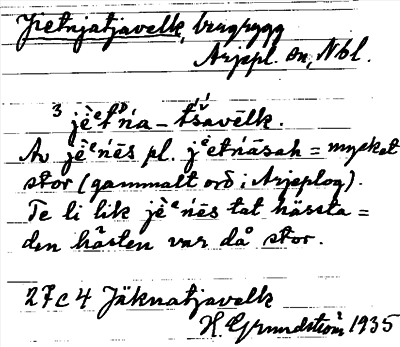 Jetnjatjavelk, bergrygg
Arjepl. sn, Nbl.
3 jèᵉtᴰńa – tšavelk.
Av jèᵉńēs pl. jèᵉtńāsah = mycket
stor (gammalt ord i Arjeplog).
Te li lik jèᵉńēs tat hässta =
den hästen var då stor.
27c4 Jäknatjavelk
H. Grundström 1935